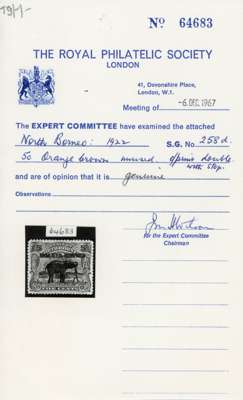 79/-/-
No 64683
THE ROYAL PHILATELIC SOCIETY
LONDON
41, Devonshire Place,
London, W.1.
Meeting of -6. DEC. 1967
The EXPERT COMMITTEE have examined the attached
North Borneo: 1922 S.G. No 258d.
5c Orange brown unused, opnt double
with stop.
and are of opinion that it is genuine
Observations
64683
for the Expert Committee
Chairman